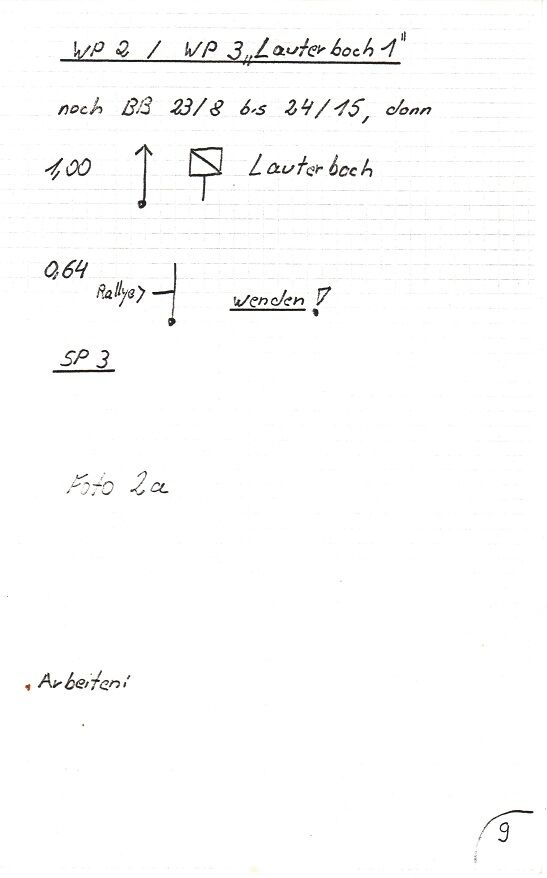 WP 2 / WP 3 „Lauterbach 1"
nach BB 23/8 bis 24/15, dann
1,00 Lauterbach
0,64
Rallye> wenden!
SP 3
Foto 2a
Arbeiten:
9